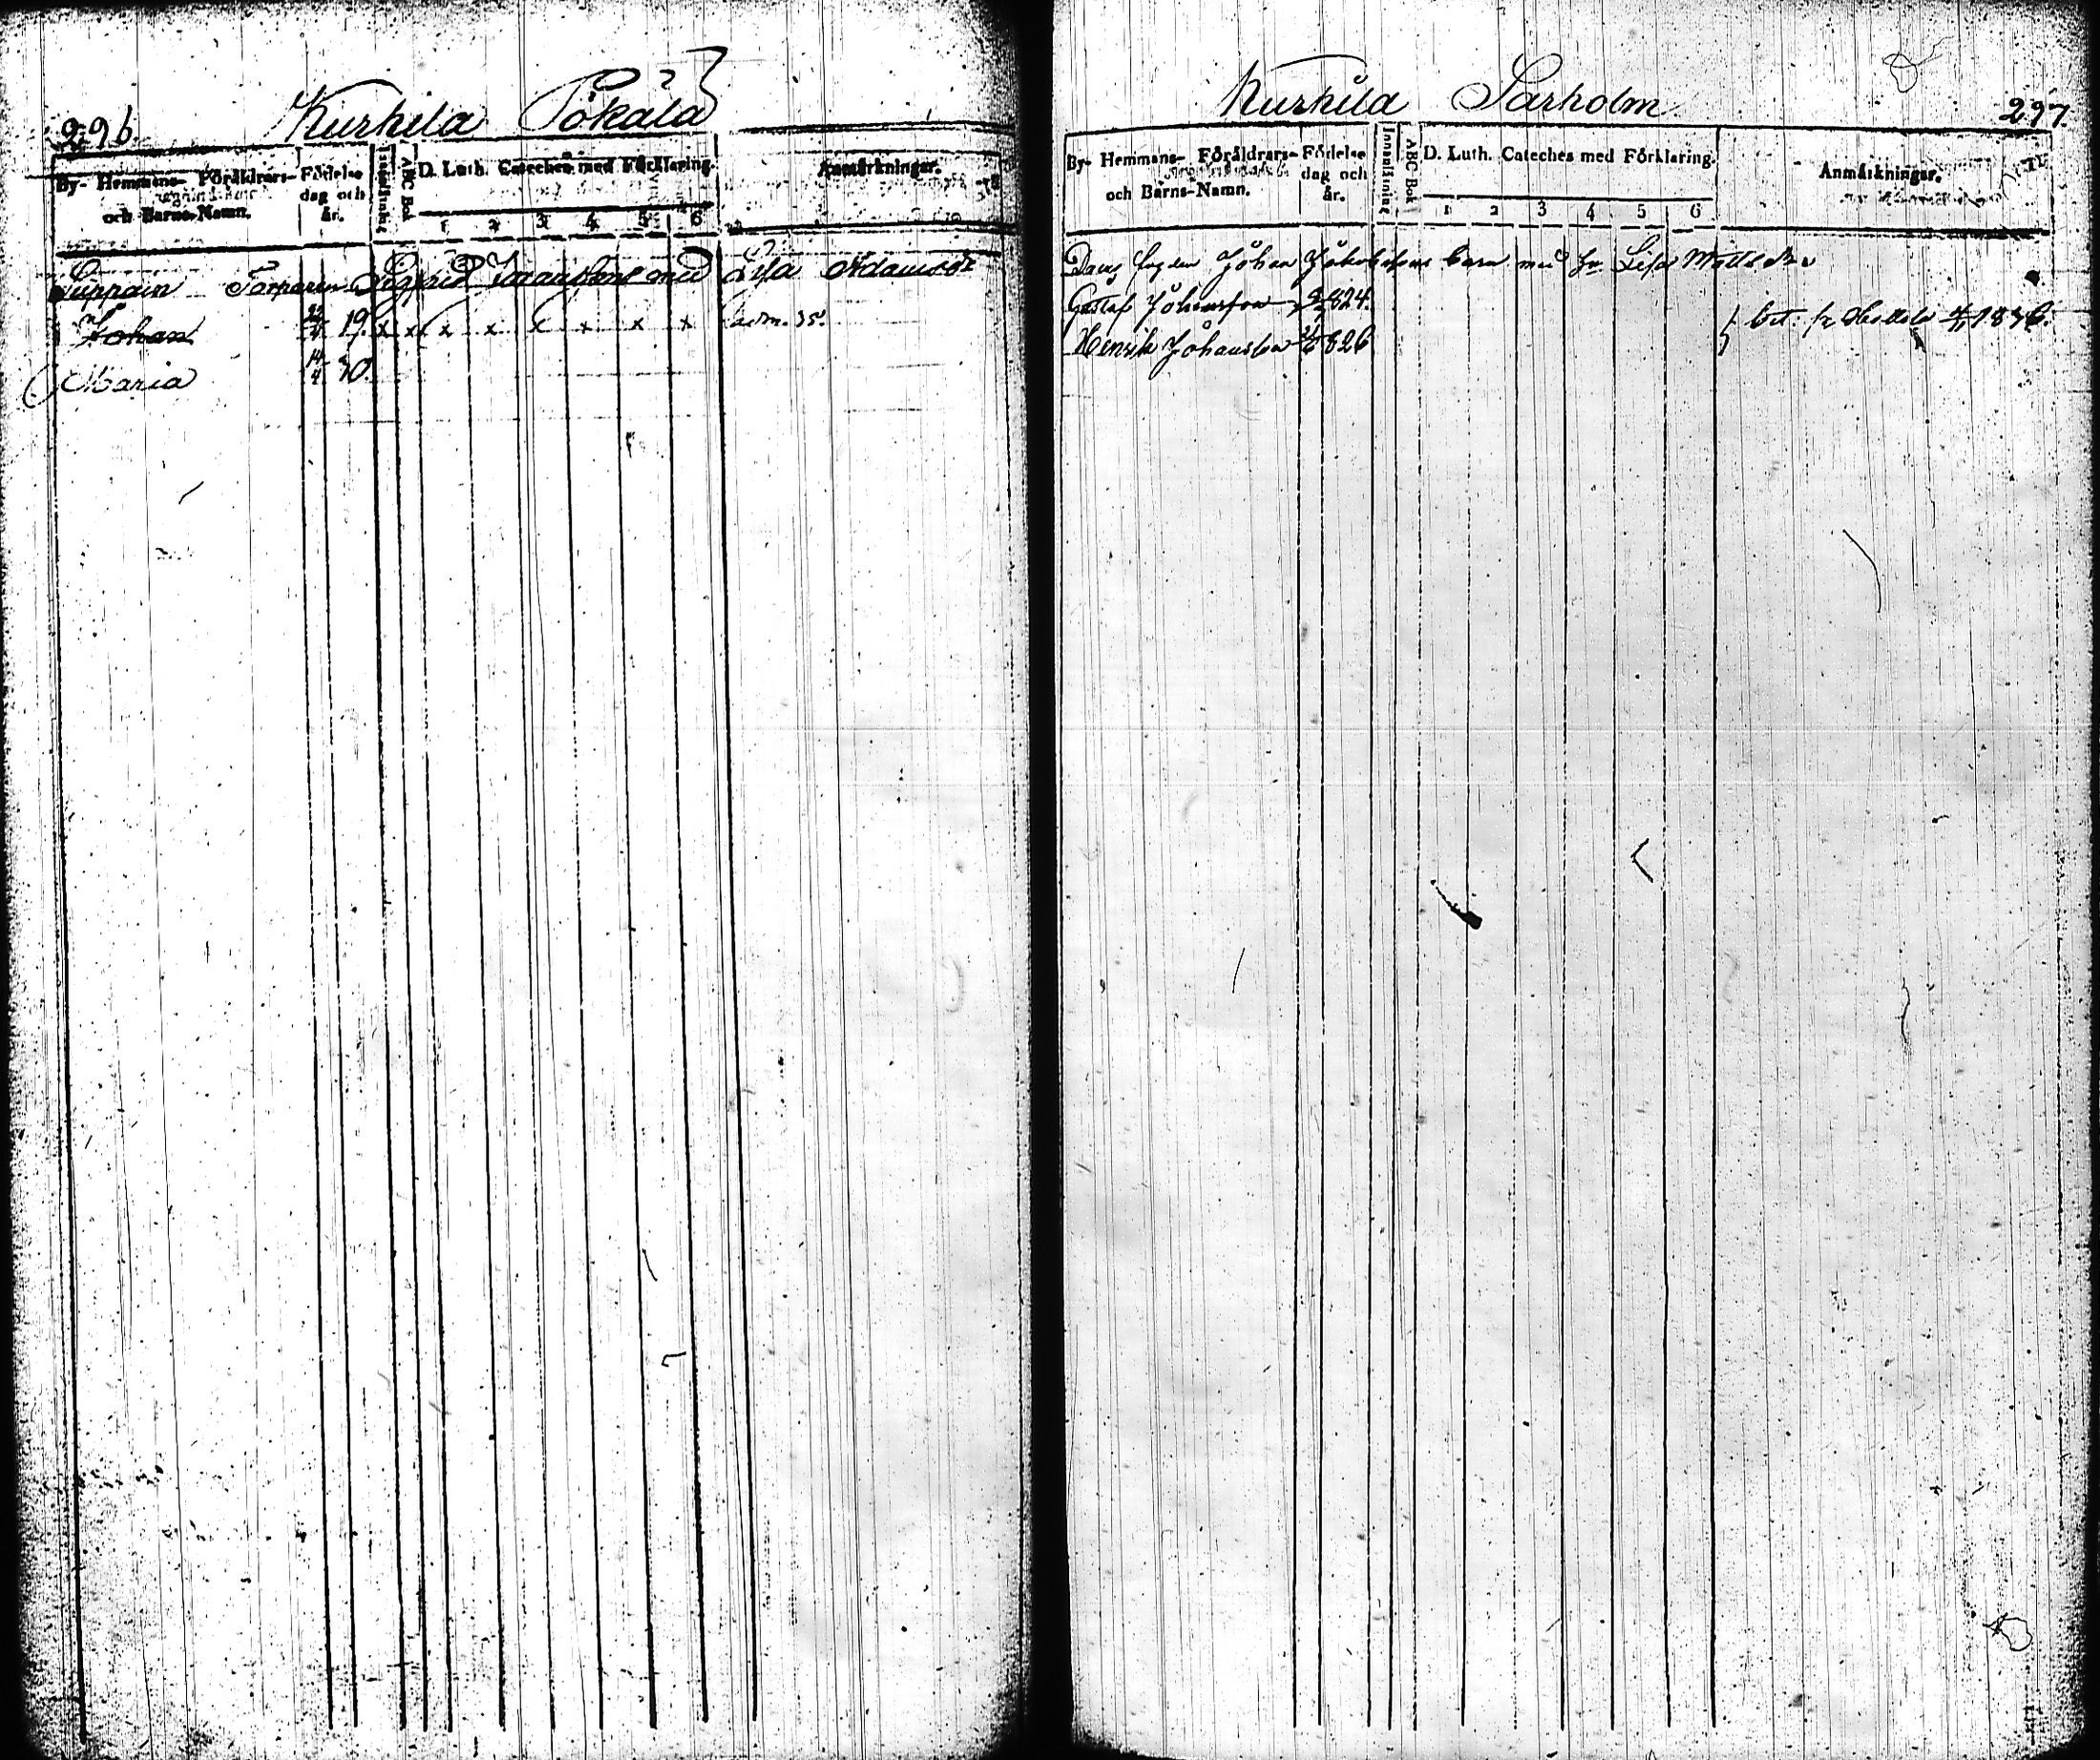 296.
Kurhila Pökälä
By- Hemmans- Föräldrars- och Barns-Namn.
Födelse dag och år.
ABC Bok
D. Luth. Cateches med Förklaring.
1 2 3 4 5 6
Anmärkningar.
Torparen Sigfrid med Lisa Adamsdr
Johan 19. x x x x x x x x adm. 35.
Maria 14/4 30.
Kurhila Sarholm
297.
By- Hemmans- Föräldrars- och Barns-Namn.
Födelse dag och år.
Innanläsning
ABC Bok
D. Luth. Cateches med Förklaring.
1 2 3 4 5 6
Anmärkningar.
Johan Jakobssons barn med Lisa Mattsdr
Gustaf Johansson 824.
Henrik Johansson 826
1836.